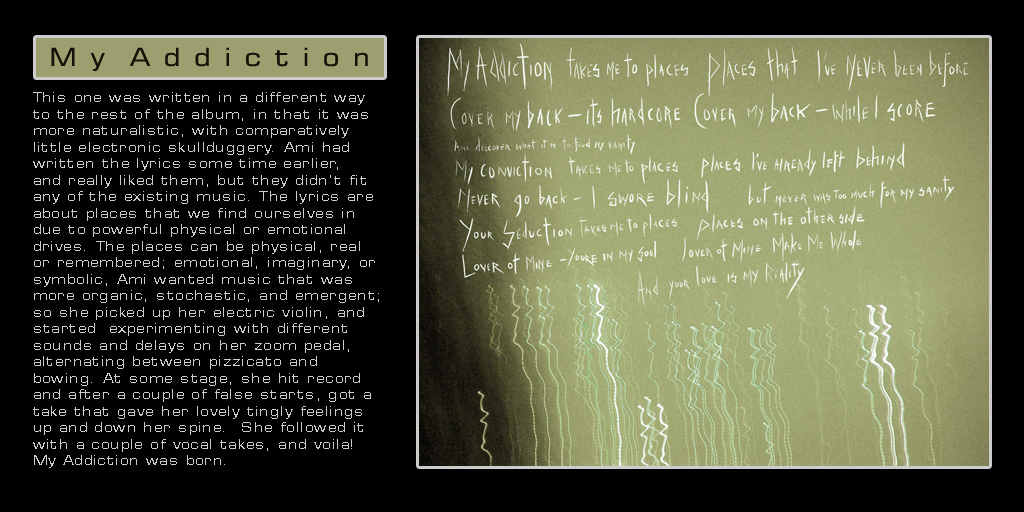 My Addiction
This one was written in a different way
to the rest of the album, in that it was
more naturalistic, with comparatively
little electronic skullduggery. Ami had
written the lyrics some time earlier,
and really liked them, but they didn't fit
any of the existing music. The lyrics are
about places that we find ourselves in
due to powerful physical or emotional
drives. The places can be physical, real
or remembered; emotional, imaginary, or
symbolic, Ami wanted music that was
more organic, stochastic, and emergent;
so she picked up her electric violin, and
started experimenting with different
sounds and delays on her zoom pedal,
alternating between pizzicato and
bowing. At some stage, she hit record
and after a couple of false starts, got a
take that gave her lovely tingly feelings
up and down her spine. She followed it
with a couple of vocal takes, and voila!
My Addiction was born.
My Addiction takes me to places places that I've never been before
Cover my back – its hardcore Cover my back – while I score
And discover what it is to feed my vanity
My conviction takes me to places places I've already left behind
Never go back – I swore blind but never was too much for my sanity
Your Seduction takes me to places places on the other side
Lover of Mine – you're in my soul lover of Mine Make Me Whole
And your love is my Reality